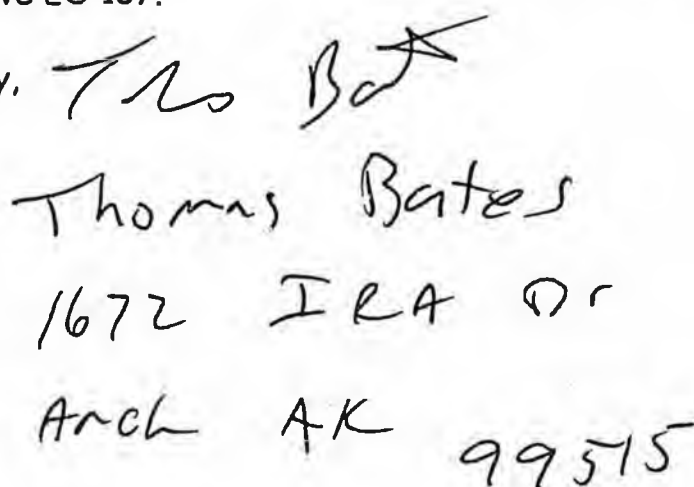 Tho Bat
Thomas Bates
1672 IRA Dr
Anch AK 99515